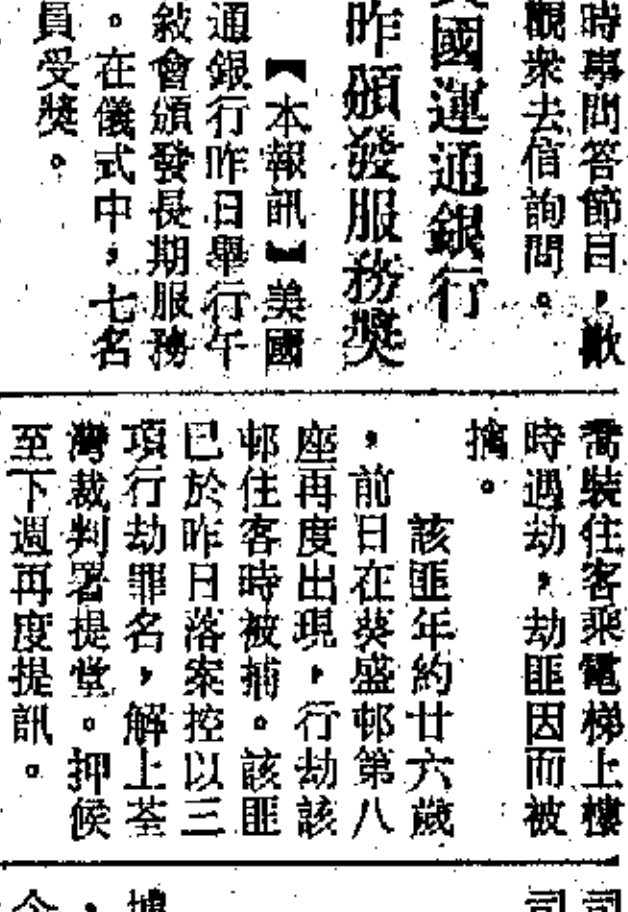 時事問答節目，歡
觀衆去信詢問。
美國運通銀行
昨頒發服務獎
【本報訊】美國
通銀行昨日舉行午
敍會頒發長期服務
。在儀式中，七名
員受獎。
喬裝住客乘電梯上樓
時遇劫，劫匪因而被
擒。
該匪年約廿六歲
，前日在葵盛邨第八
座再度出現，行劫該
邨住客時被捕。該匪
已於昨日落案控以三
項行劫罪名，解上荃
灣裁判署提堂。押候
至下週再度提訊。
司
司